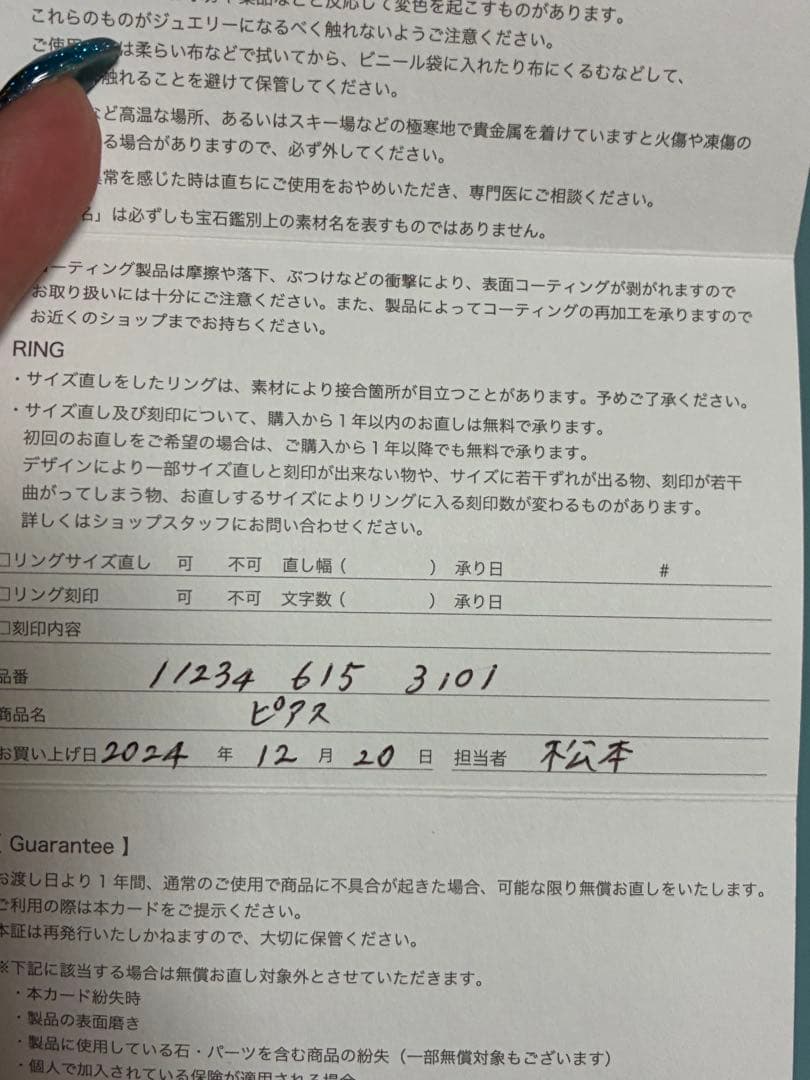 薬品などと反応して変色を起こすものがあります。
これらのものがジュエリーになるべく触れないようご注意ください。
ご使用 は柔らい布などで拭いてから、ビニール袋に入れたり布にくるむなどして、
触れることを避けて保管してください。
など高温な場所、あるいはスキー場などの極寒地で貴金属を着けていますと火傷や凍傷の
る場合がありますので、必ず外してください。
常を感じた時は直ちにご使用をおやめいただき、専門医にご相談ください。
名」は必ずしも宝石鑑別上の素材名を表すものではありません。
コーティング製品は摩擦や落下、ぶつけなどの衝撃により、表面コーティングが剥がれますので
お取り扱いには十分にご注意ください。また、製品によってコーティングの再加工を承りますので
お近くのショップまでお持ちください。
RING
・サイズ直しをしたリングは、素材により接合箇所が目立つことがあります。予めご了承ください。
・サイズ直し及び刻印について、購入から1年以内のお直しは無料で承ります。
初回のお直しをご希望の場合は、ご購入から1年以降でも無料で承ります。
デザインにより一部サイズ直しと刻印が出来ない物や、サイズに若干ずれが出る物、刻印が若干
曲がってしまう物、お直しするサイズによりリングに入る刻印数が変わるものがあります。
詳しくはショップスタッフにお問い合わせください。
□リングサイズ直し 可 不可 直し幅 ( ) 承り日 #
□リング刻印 可 不可 文字数 ( ) 承り日
□刻印内容
品番 11234 615 3101
商品名 ピアス
お買い上げ日 2024 年 12 月 20 日 担当者 松本
【 Guarantee 】
お渡し日より1年間、通常のご使用で商品に不具合が起きた場合、可能な限り無償お直しをいたします。
ご利用の際は本カードをご提示ください。
本証は再発行いたしかねますので、大切に保管ください。
※下記に該当する場合は無償お直し対象外とさせていただきます。
・本カード紛失時
・製品の表面磨き
・製品に使用している石・パーツを含む商品の紛失（一部無償対象もございます）
・個人で加入されている保険が適用される場合